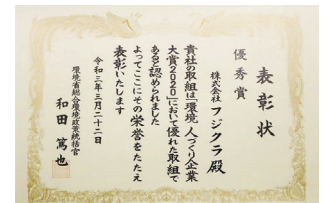 表彰状
優秀賞
株式会社フジクラ殿
貴社の取組は「環境 人づくり企業
大賞2020」において優れた取組で
あると認められました
よってここにその栄誉をたたえ
表彰いたします
令和三年三月二十二日
環境省総合環境政策統括官
和田篤也